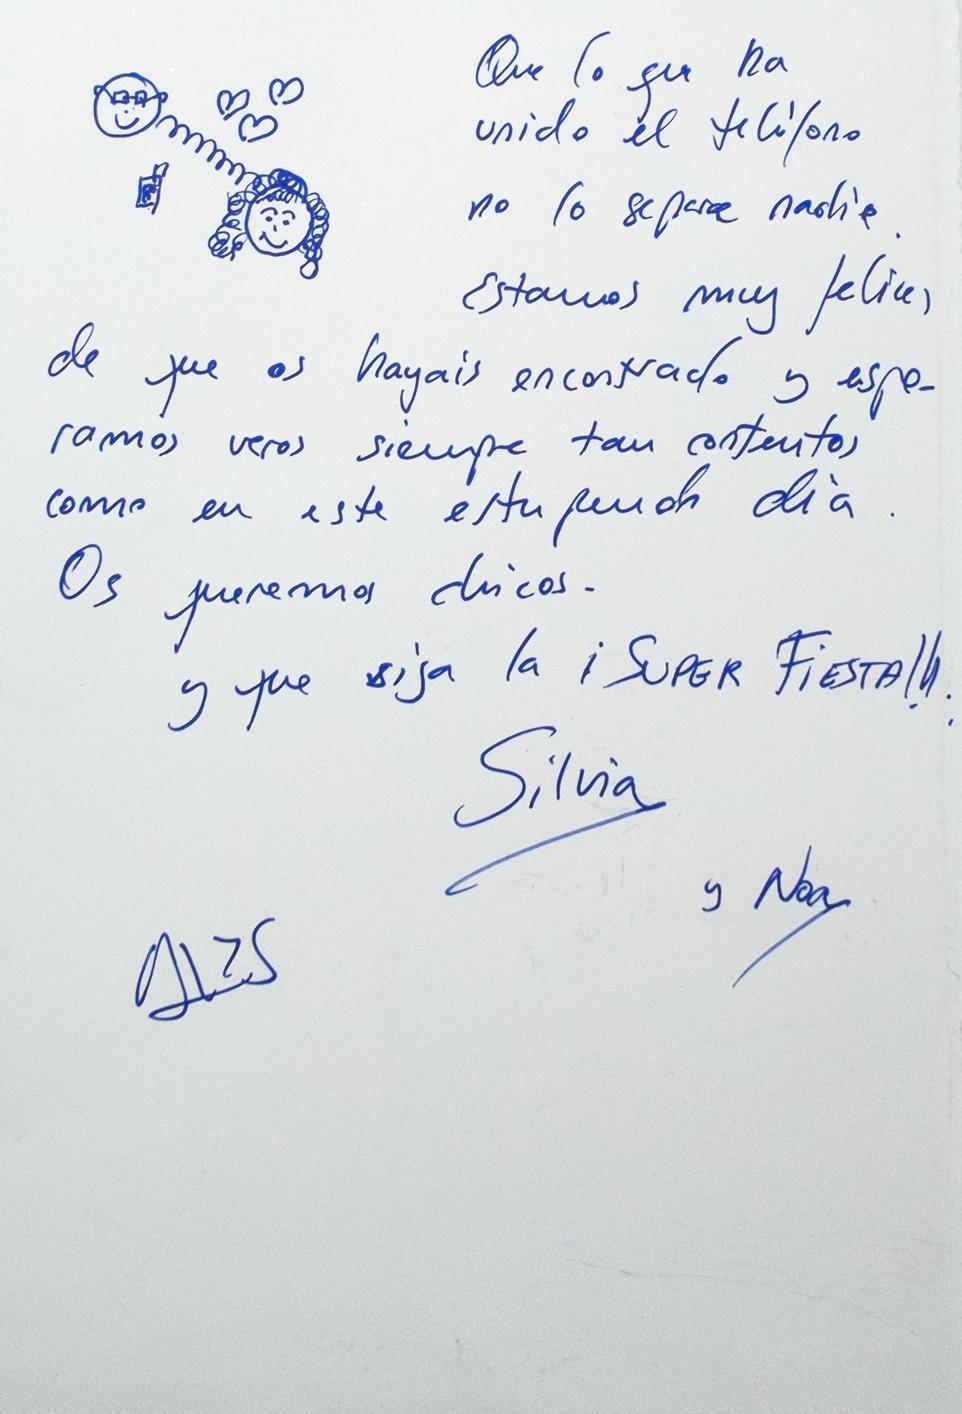 Que lo que ha
unido el teléfono
no lo separe nadie.
Estamos muy felices
de que os hayais encontrado y espe-
ramos veros siempre tan contentos
como en este estupendo día.
Os queremos chicos.
y que siga la ¡SUPER FIESTA!!!
Silvia
y Noa